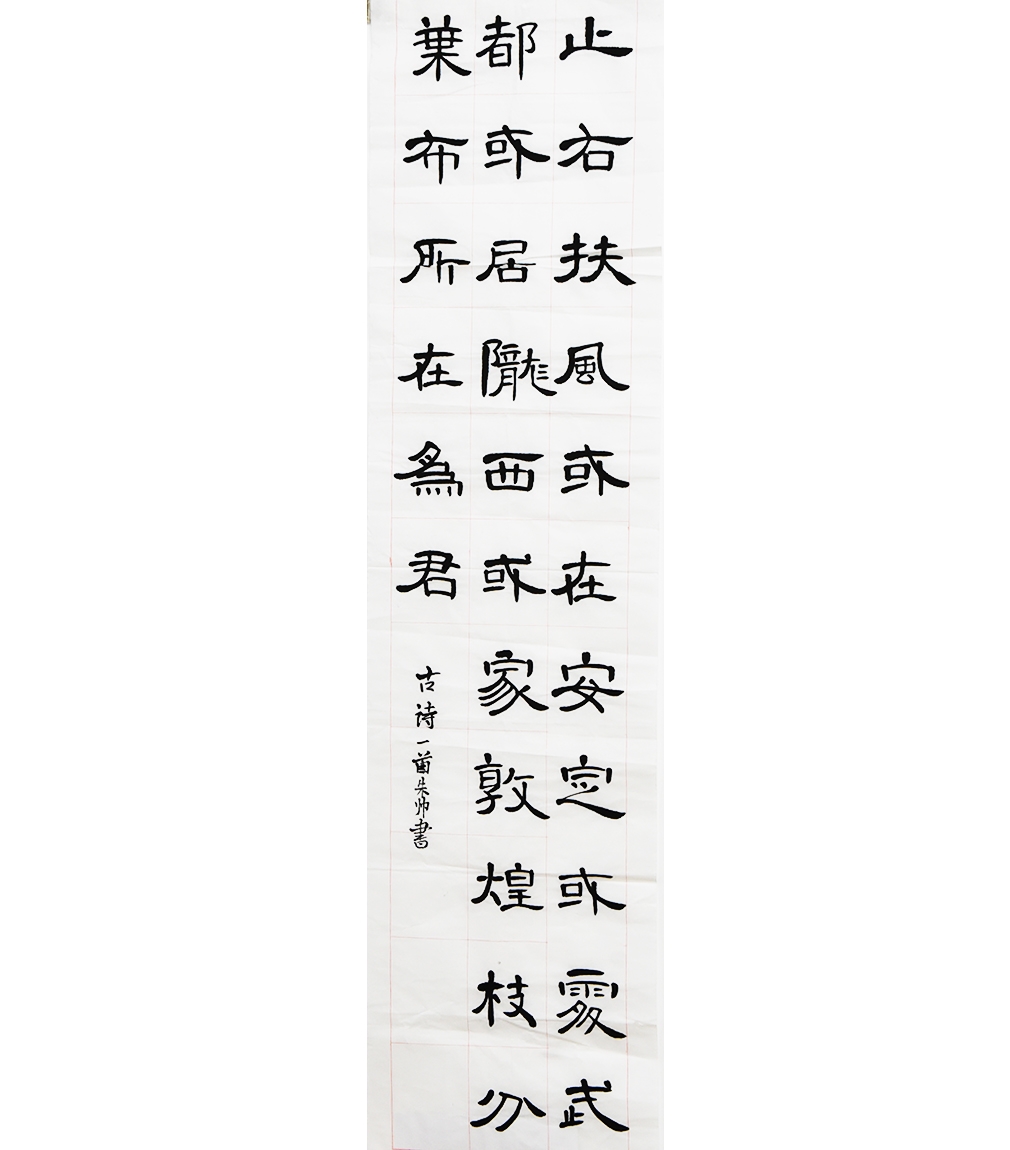 止右扶風或在安定或處武
都或居隴西或家敦煌枝分
葉布所在為君
古诗一首朱帅書